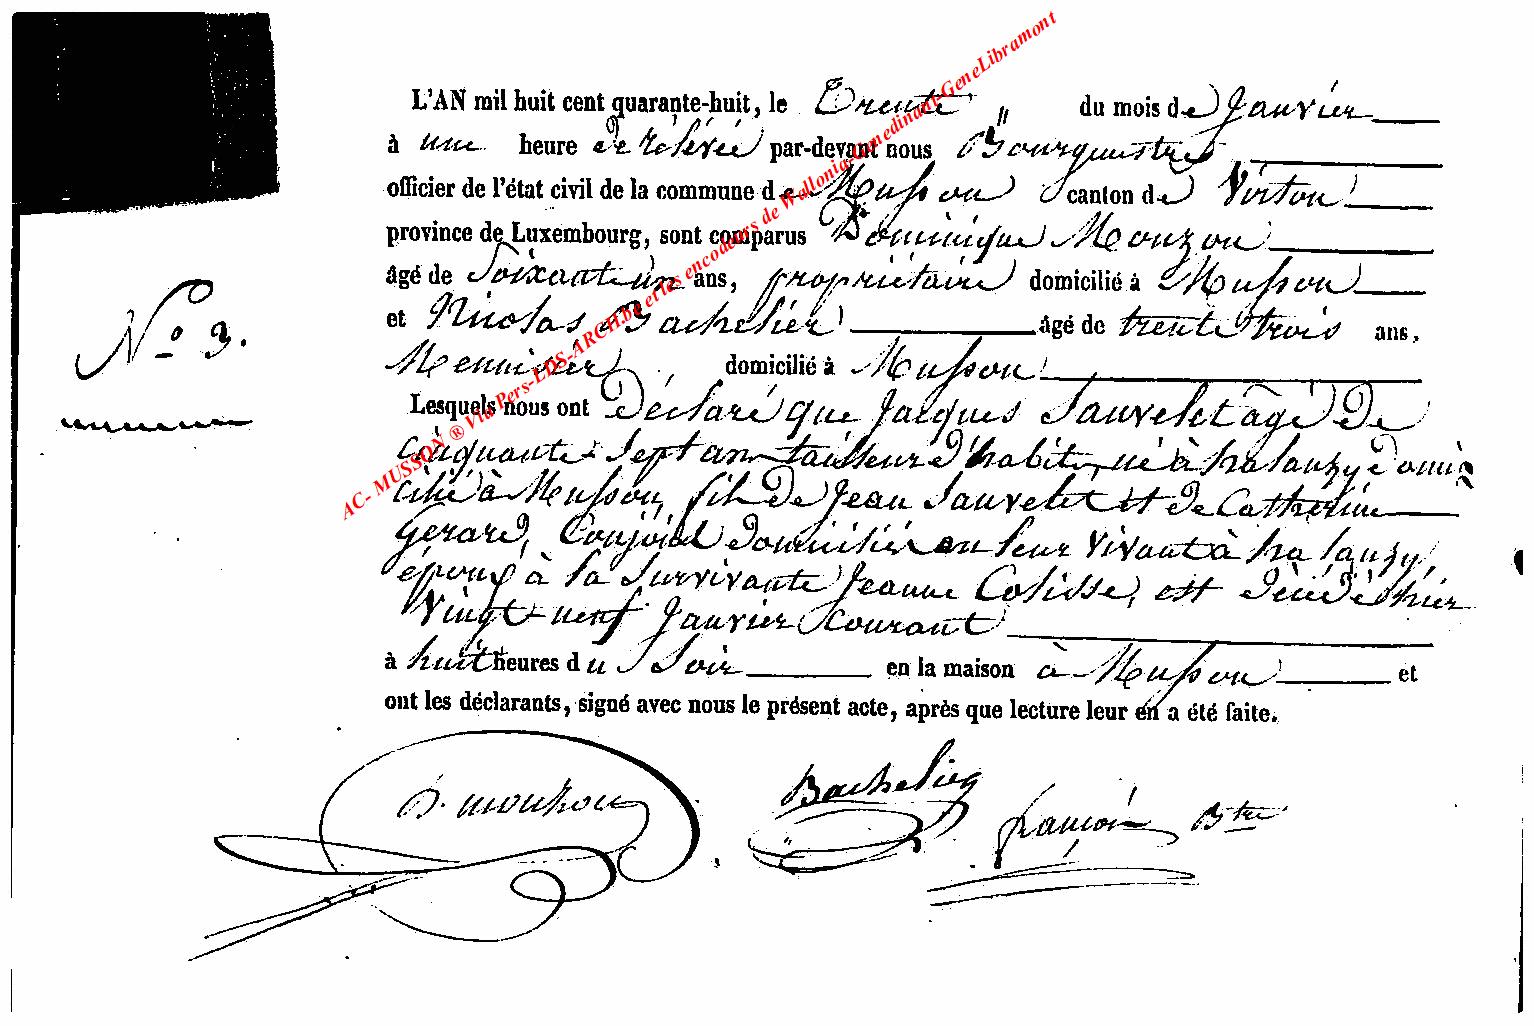 L'AN mil huit cent quarante-huit, le Trente du mois de Janvier
à une heure de rélévée par-devant nous Bourguestre
officier de l'état civil de la commune de Musson canton de Virton
province de Luxembourg, sont comparus Dominique Mouzon
âgé de Soixante un ans, propriétaire domicilié à Musson
et Nicolas Bachelier âgé de trente trois ans,
N° 3.
Meunier domicilié à Musson
Lesquels nous ont déclaré que Jacques Sauvelet âgé de
cinquante-sept ans tailleur d'habit, né à halanzy domi-
cilié à Musson, fils de Jean Sauvelet et de Catherine
Gerard, Conjoint domiciliés en leur vivant à halanzy,
époux à la survivante Jeanne Colisse, est décédé hier
vingt-neuf Janvier courant
à huit heures du Soir en la maison à Musson et
ont les déclarants, signé avec nous le présent acte, après que lecture leur en a été faite.
D. mouzon Bachelier françois Bstre
AC- MUSSON ® Via Pers-LDS-ARCH.be et les encodeurs de Wallonia-Genedinant-GeneLibramont